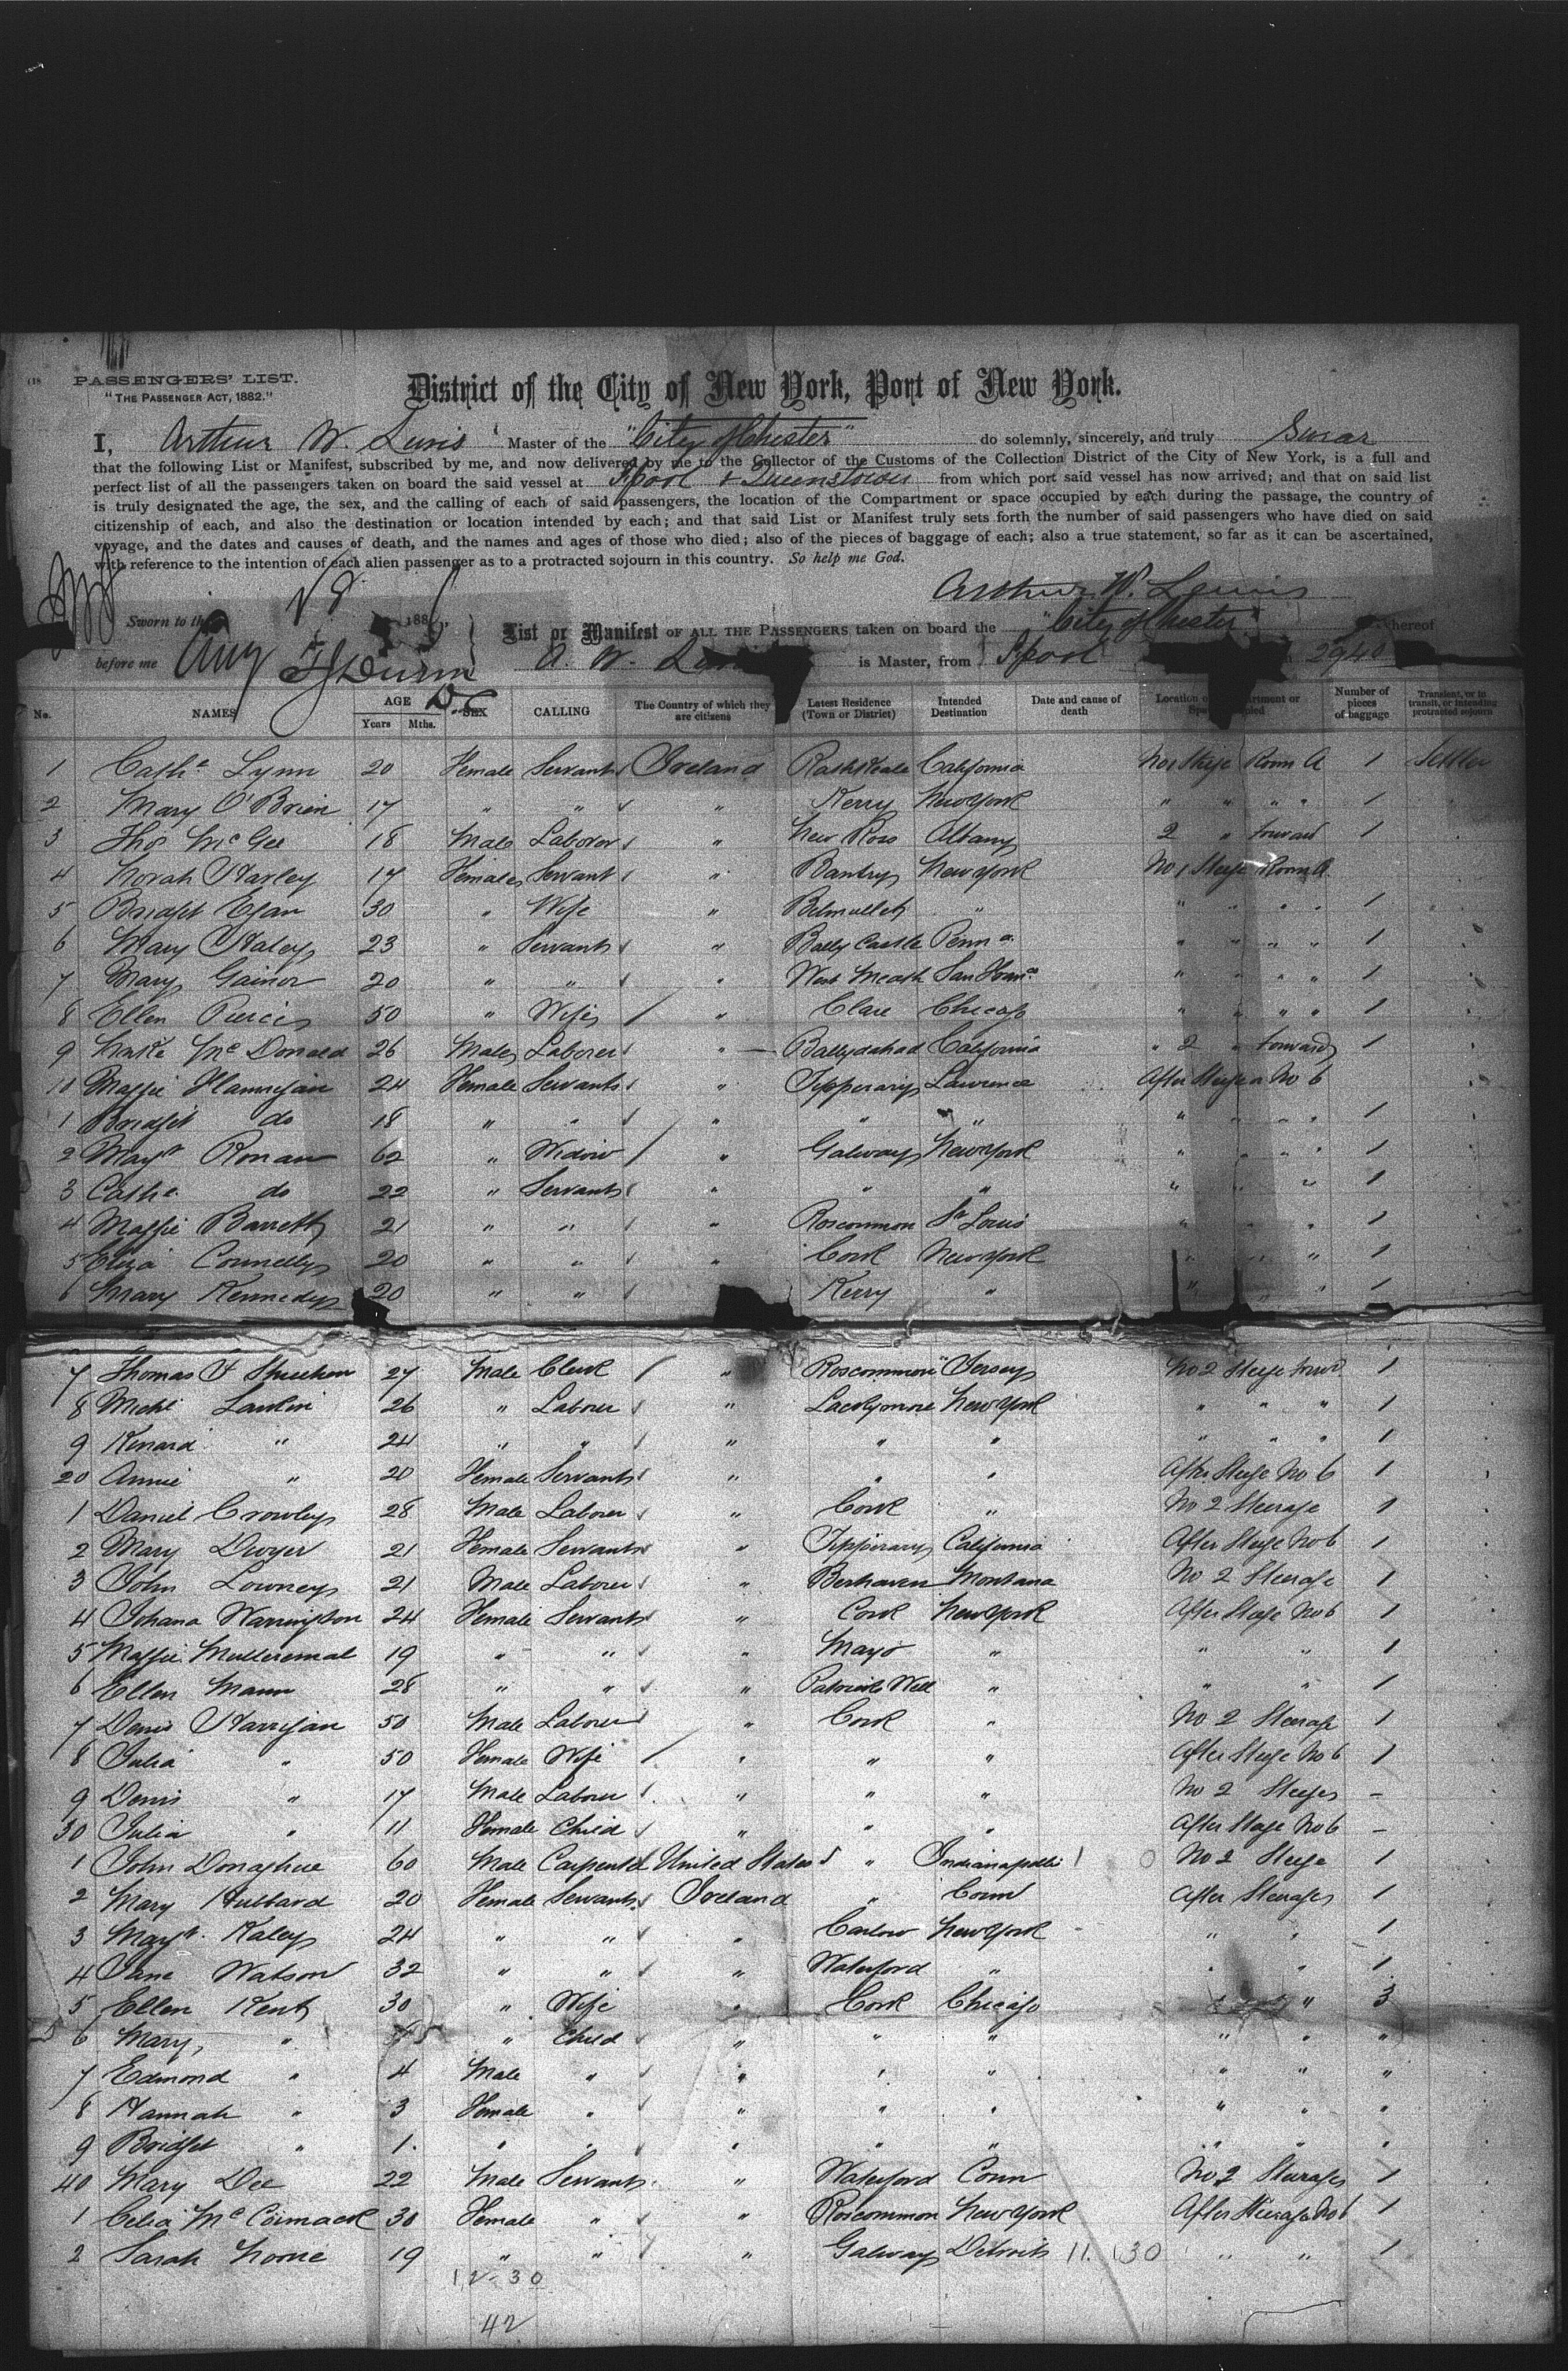 PASSENGERS' LIST.
"THE PASSENGER ACT, 1882."
District of the City of New York, Port of New York.
I, Arthur W. Lewis Master of the "City of Chester" do solemnly, sincerely, and truly Swear
that the following List or Manifest, subscribed by me, and now delivered by me to the Collector of the Customs of the Collection District of the City of New York, is a full and
perfect list of all the passengers taken on board the said vessel at L'pool & Queenstown from which port said vessel has now arrived; and that on said list
is truly designated the age, the sex, and the calling of each of said passengers, the location of the Compartment or space occupied by each during the passage, the country of
citizenship of each, and also the destination or location intended by each; and that said List or Manifest truly sets forth the number of said passengers who have died on said
voyage, and the dates and causes of death, and the names and ages of those who died; also of the pieces of baggage of each; also a true statement, so far as it can be ascertained,
with reference to the intention of each alien passenger as to a protracted sojourn in this country. So help me God.
Arthur W. Lewis
Sworn to 188
List or Manifest OF ALL THE PASSENGERS taken on board the "City of Chester" whereof
before me Aug A. W. is Master, from L'pool 2940
No. NAMES AGE Years Mths. SEX CALLING The Country of which they are citizens Latest Residence (Town or District) Intended Destination Date and cause of death Location of Number of pieces of baggage Transient, or in transit, or intending protracted sojourn
1 Cathe Lynn 20 Female Servant Ireland Rathkeale California No 1 Stge Room A 1 Settler
2 Mary O'Brien 17 " " " Kerry New York " " " " 1
3 Thos McGee 18 Male Laborer " New Ross Albany 2 " forward 1
4 Norah Harley 17 Female Servant " Bantry New York No 1 Steege Room A
5 Bridget Egan 30 " Wife " Belmullet " " " " " 1
6 Mary Haley 23 " Servant " Bally Castle Penna " " " " 1
7 Mary Gainor 20 " " " West Meath San Franco " " " " 1
8 Ellen Pierce 50 " Wife " Clare Chicago " " " " 1
9 McDonald 26 Male Laborer " Ballydahad California " 2 " forward 1
10 Maggie Flannigan 24 Female Servant " Tipperary Lawrence After Steege No 6
1 Bridget do 18 " " " " " " " " " 1
2 Magt Ronan 62 " Widow " Galway New York " " " " 1
3 Cathe do 22 " Servant " " " " " " 1
4 Maggie Barrett 21 " " " Roscommon St Louis " " " 1
5 Eliza Connelly 20 " " " Cork New York " " " 1
6 Mary Kennedy 20 " " Kerry " " " 1
7 Thomas 27 Male Clerk " Roscommon Jersey No 2 Steege forwd 1
8 Michl Larkin 26 " Laborer " New York " " " 1
9 Kenard " 24 " " " " " " " " 1
20 Annie " 20 Female Servant " " " After Steege No 6 1
1 Daniel Crowley 28 Male Laborer " Cork " No 2 Steerage 1
2 Mary Dwyer 21 Female Servant " Tipperary California After Steege No 6 1
3 John Lowney 21 Male Laborer " Berhaven Montana No 2 Steerage 1
4 Johana Warrington 24 Female Servant " Cork New York After Steege No 6 1
5 Maggie 19 " " " Mayo " " " 1
6 Ellen Mann 28 " " " Patricks Well " " " 1
7 Denis Harrigan 50 Male Laborer " Cork " No 2 Steerage 1
8 Julia " 50 Female Wife " " " After Steege No 6 1
9 Denis " 17 Male Laborer " " " No 2 Steege -
30 Julia " 11 Female Child " " " After Stage No 6 -
1 John Donaghue 60 Male Carpenter United States " Indianapolis No 2 Steege 1
2 Mary Hubbard 20 Female Servant Ireland " Conn After Steerage 1
3 Magt. Kaley 24 " " " Carlow New York " " 1
4 Jane Watson 32 " " " Waterford " " " 1
5 Ellen Kent 30 " Wife " Cork Chicago " " 3
6 Mary, " " Child " " " " " "
7 Edmond " 4 Male " " " " " " "
8 Hannah " 3 Female " " " " " " "
9 Bridget " 1 " " " " " " " "
40 Mary Dee 22 Male Servant " Waterford Conn No 2 Steerage 1
1 Celia McCormack 30 Female " " Roscommon New York After Steerage No 6 1
2 Sarah 19 " " " Galway Detroit 11. 30 " " 1
12 - 30
42